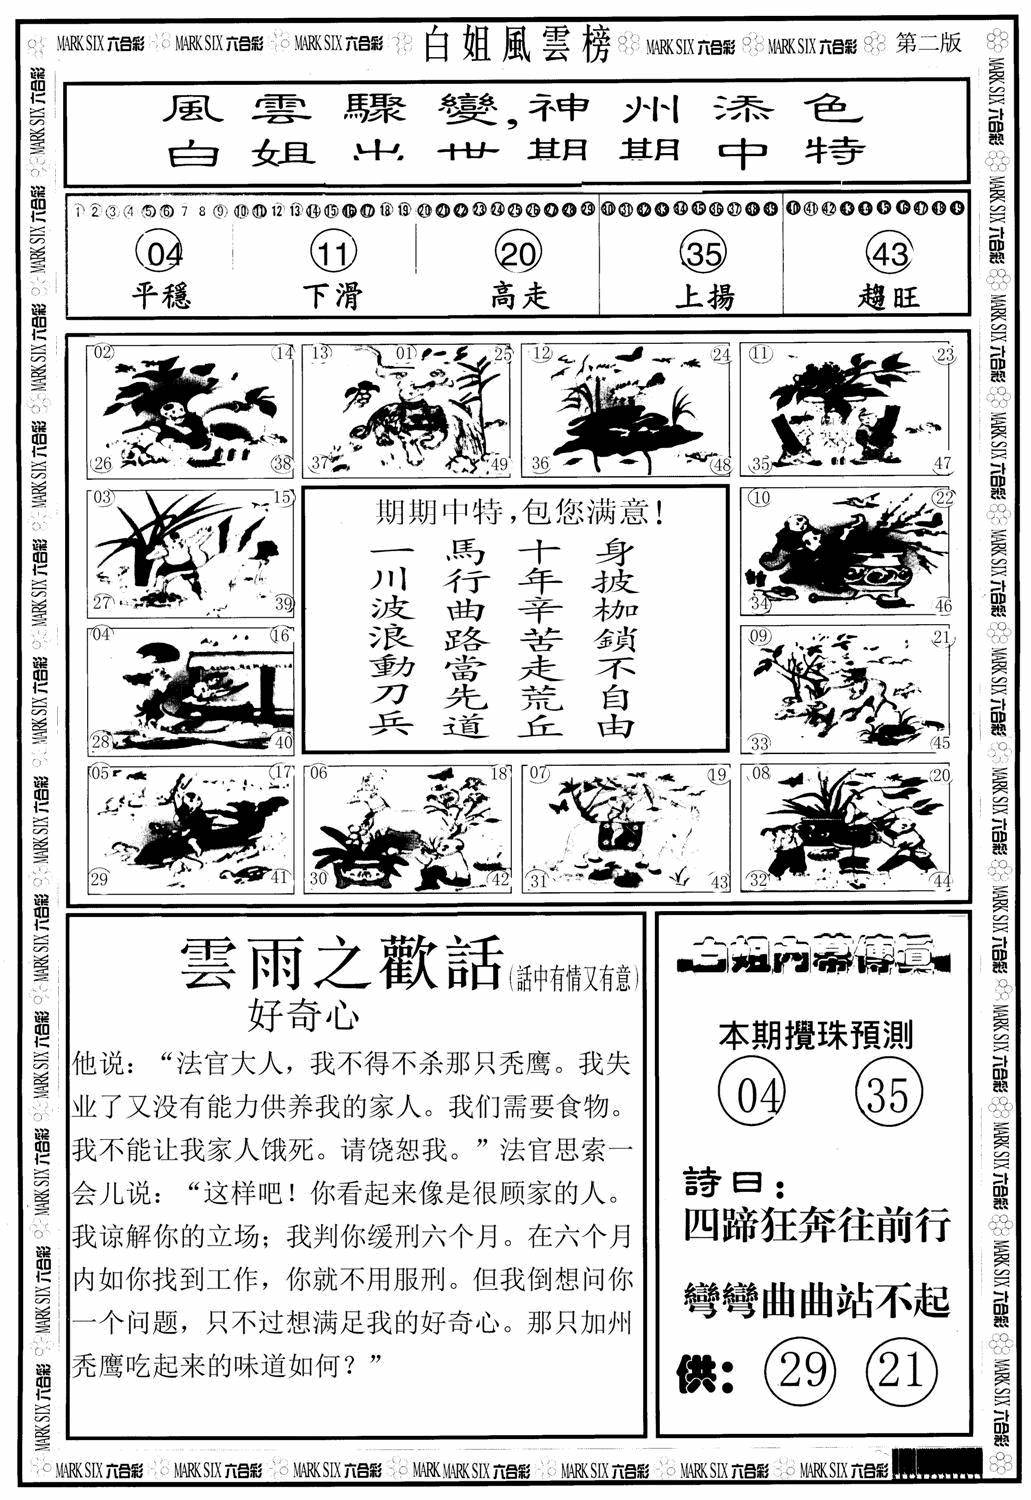 MARK SIX 六合彩 MARK SIX 六合彩 MARK SIX 六合彩 白姐風雲榜 MARK SIX 六合彩 MARK SIX 六合彩 第二版
風雲驟變,神州添色
白姐出世期期中特
1 2 3 4 5 6 7 8 9 10 11 12 13 14 15 16 17 18 19 20 21 22 23 24 25 26 27 28 29 30 31 32 33 34 35 36 37 38 39 40 41 42 43 44 45 46 47 48 49
04 11 20 35 43
平穩 下滑 高走 上揚 趨旺
02 14 13 01 25 12 24 11 23
26 38 37 49 36 48 35 47
03 15 10 22
27 39 34 46
04 16 09 21
28 40 33 45
期期中特,包您满意!
身披枷鎖不自由
十年辛苦走荒丘
馬行曲路當先道
一川波浪動刀兵
05 17 06 18 07 19 08 20
29 41 30 42 31 43 32 44
雲雨之歡話(話中有情又有意)
好奇心
他说：“法官大人，我不得不杀那只秃鹰。我失
业了又没有能力供养我的家人。我们需要食物。
我不能让我家人饿死。请饶恕我。”法官思索一
会儿说：“这样吧！你看起来像是很顾家的人。
我谅解你的立场；我判你缓刑六个月。在六个月
内如你找到工作，你就不用服刑。但我倒想问你
一个问题，只不过想满足我的好奇心。那只加州
秃鹰吃起来的味道如何？”
白姐內幕傳真
本期攪珠預測
04 35
詩曰：
四蹄狂奔往前行
彎彎曲曲站不起
供： 29 21
MARK SIX 六合彩 MARK SIX 六合彩 MARK SIX 六合彩 MARK MARK SIX 六合彩 MARK SIX 六合彩 MARK SIX 六合彩 MARK SIX 六合彩